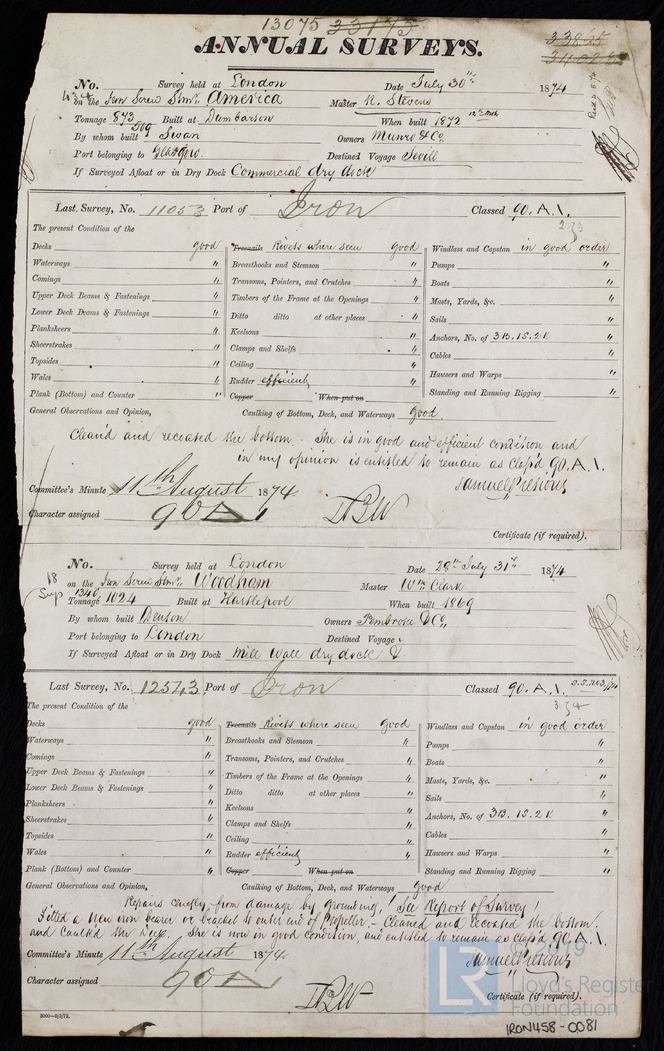 13075 33175
ANNUAL SURVEYS.
33865
No. Survey held at London Date July 30th 1874
on the Iron Screw Stmr. America Master R. Stevens
Tonnage 873 509 Built at Dumbarton When built 1872
By whom built Swan Owners Munro & Co.
Port belonging to Glasgow. Destined Voyage Sevill
If Surveyed Afloat or in Dry Dock Commercial dry dock
Last Survey, No. 11053 Port of Iron Classed 90.A.1.
The present Condition of the
Decks good Treenails Rivets where seen good Windlass and Capstan in good order
Waterways " Breasthooks and Stemson " Pumps "
Comings " Transoms, Pointers, and Crutches " Boats "
Upper Deck Beams & Fastenings " Timbers of the Frame at the Openings " Masts, Yards, &c. "
Lower Deck Beams & Fastenings " Ditto ditto at other places " Sails "
Planksheers " Keelsons " Anchors, No. of 3B.1S.2K "
Sheerstrakes " Clamps and Shelfs " Cables "
Topsides " Ceiling " Hawsers and Warps "
Wales " Rudder efficient " Standing and Running Rigging "
Plank (Bottom) and Counter " Copper When put on
General Observations and Opinion, Caulking of Bottom, Deck, and Waterways good
Clean'd and recoated the bottom. She is in good and efficient condition and
in my opinion is entitled to remain as Class'd 90.A.1.
Committee's Minute 11th August 1874
Character assigned 90A1
Certificate (if required).
No. Survey held at London Date 28th July 31st 1874
on the Iron Screw Stmr. Woodham Master Wm Clark
Tonnage 1340 1024 Built at Hartlepool When built 1869
By whom built Denton Owners Pembroke & Co.
Port belonging to London Destined Voyage
If Surveyed Afloat or in Dry Dock Mill Wall dry dock &
Last Survey, No. 12543 Port of Iron Classed 90.A.1.
The present Condition of the
Decks good Treenails Rivets where seen good Windlass and Capstan in good order
Waterways " Breasthooks and Stemson " Pumps "
Comings " Transoms, Pointers, and Crutches " Boats "
Upper Deck Beams & Fastenings " Timbers of the Frame at the Openings " Masts, Yards, &c. "
Lower Deck Beams & Fastenings " Ditto ditto at other places " Sails "
Planksheers " Keelsons " Anchors, No. of 3B.1S.2K "
Sheerstrakes " Clamps and Shelfs " Cables "
Topsides " Ceiling " Hawsers and Warps "
Wales " Rudder efficient " Standing and Running Rigging "
Plank (Bottom) and Counter " Copper When put on
General Observations and Opinion, Caulking of Bottom, Deck, and Waterways good
Repairs chiefly from damage by grounding, ! See Report of Survey !
Fitted a new iron bearer or bracket to outer end of Propeller, - Cleaned and recoated the bottom.
and Caulk'd the Deck. She is now in good condition, and entitled to remain as Class'd 90.A.1.
Committee's Minute 11th August 1874
Character assigned 90A
LR Lloyd's Register Foundation
Certificate (if required).
IRON458-0081